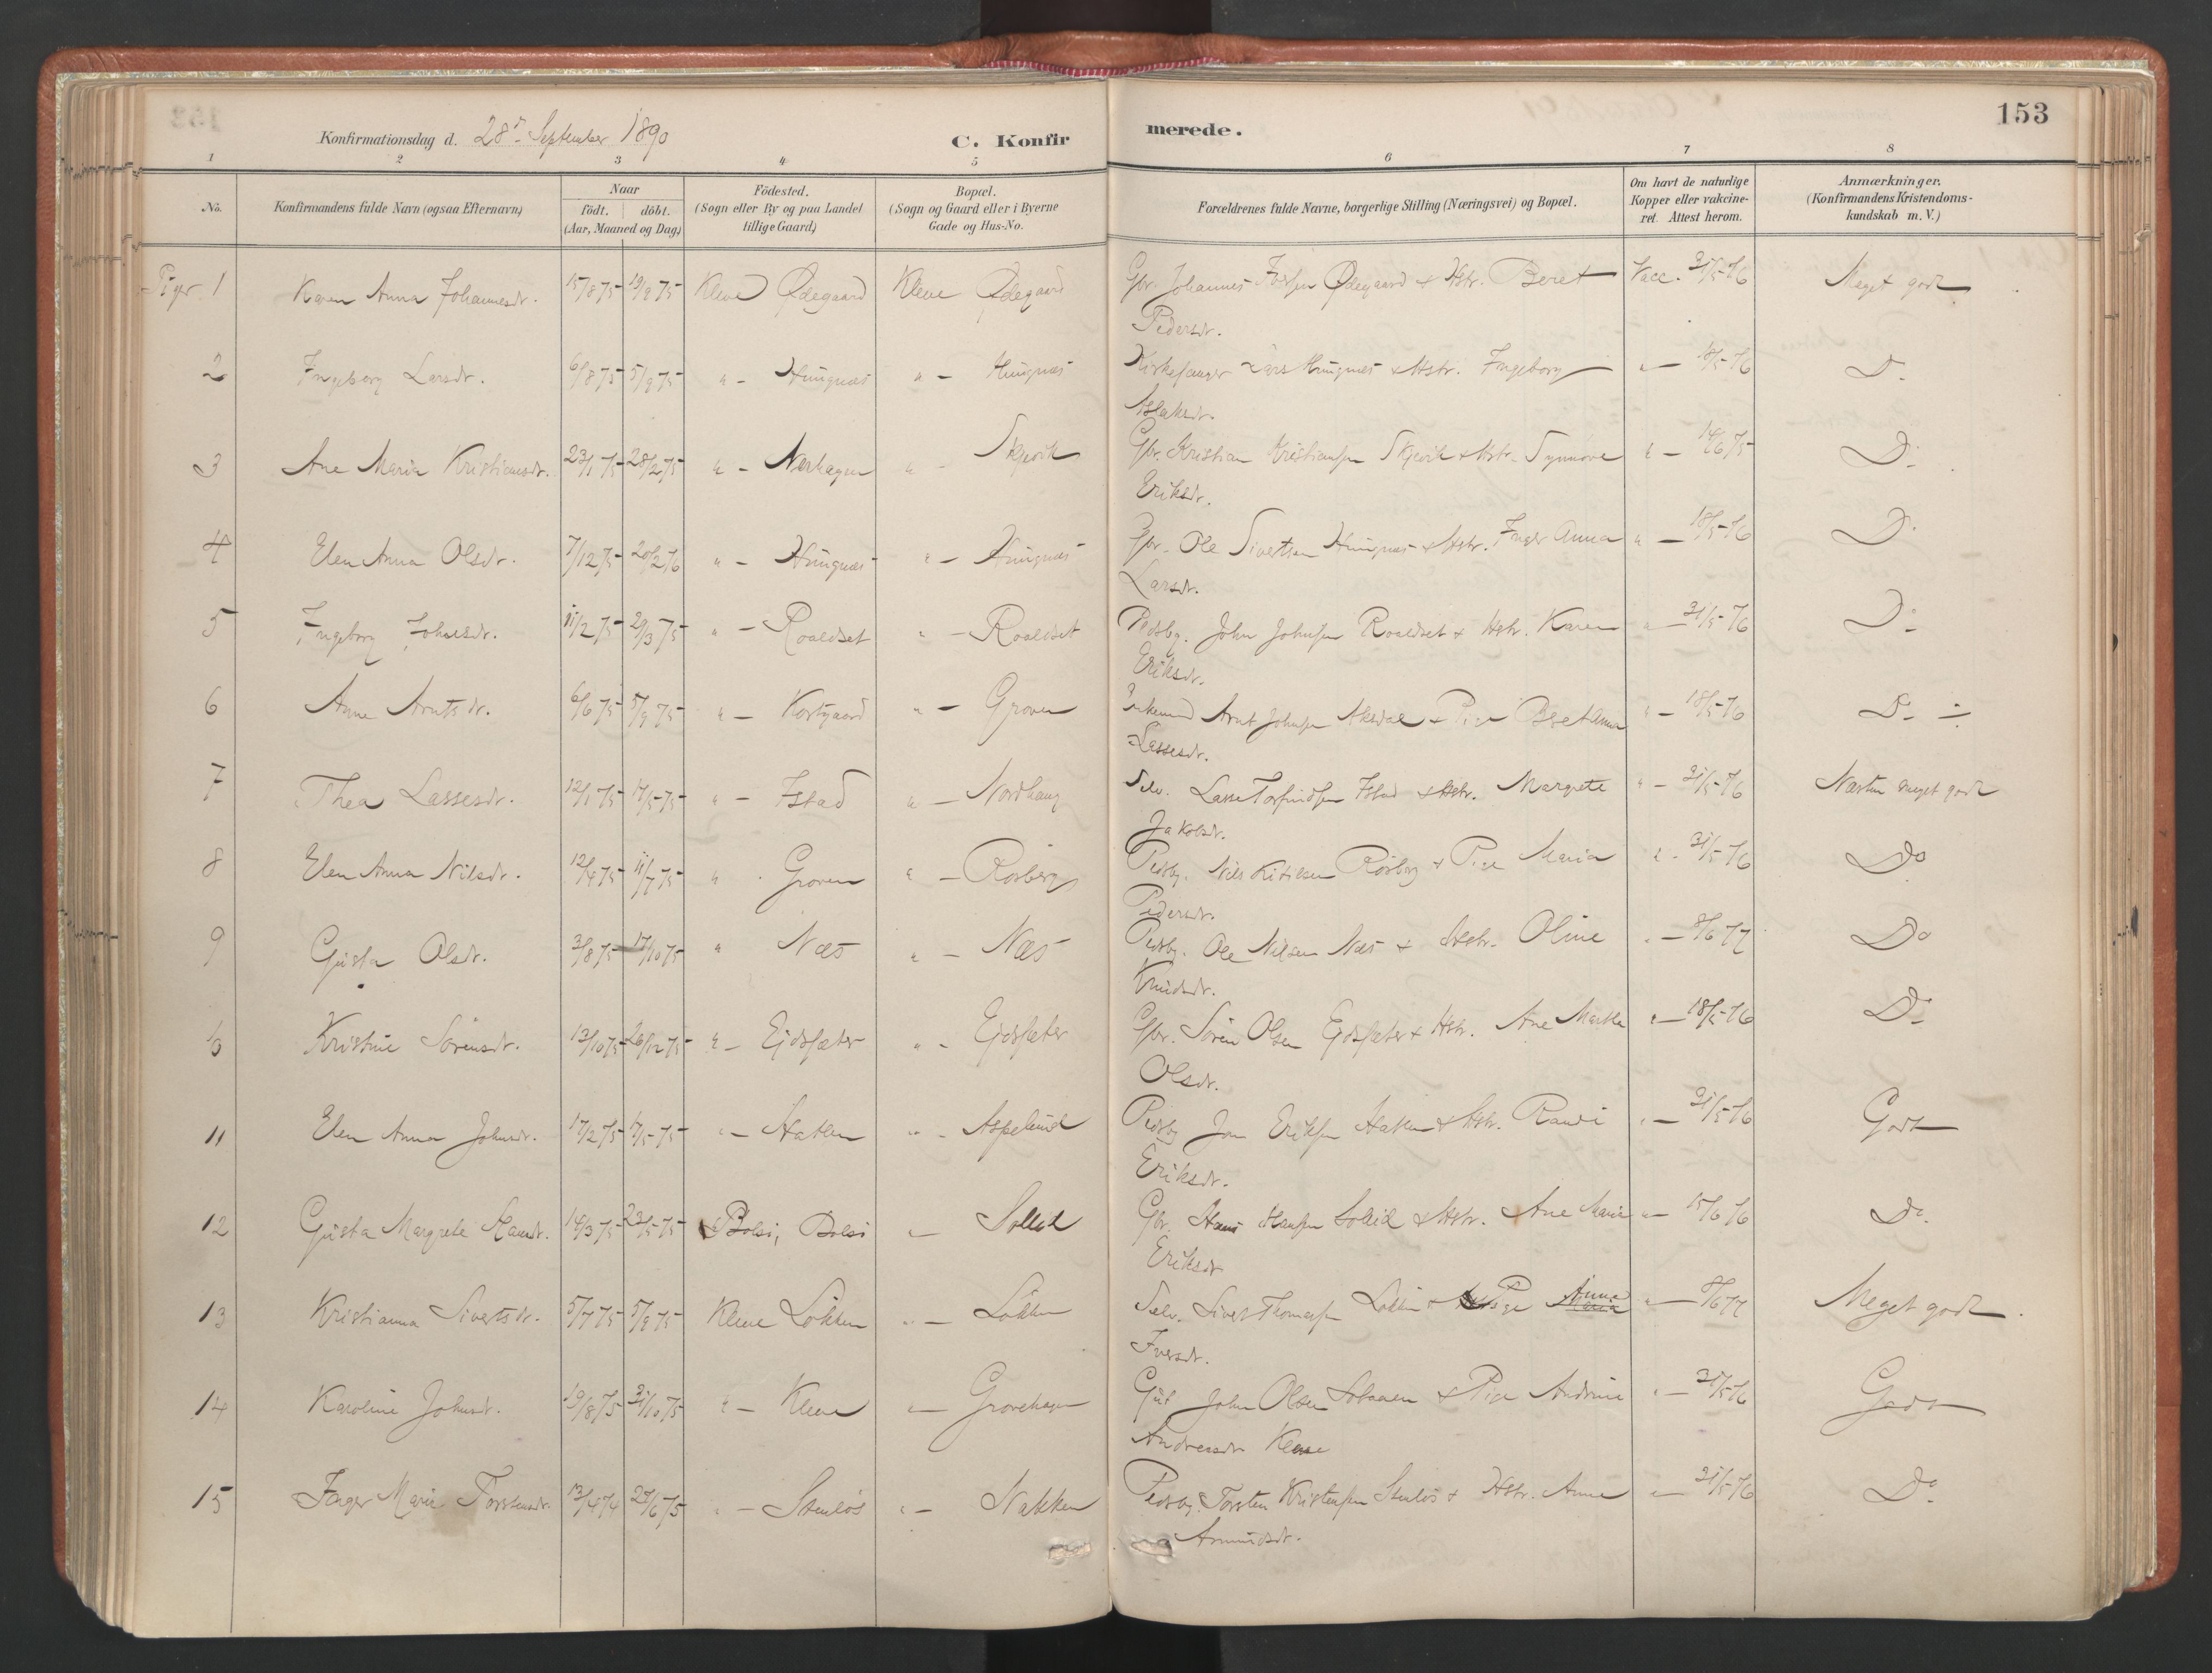 153
Konfirmationsdag d. 28de September 1890
C. Konfirmerede.
1 2 3 4 5 6 7 8
No.
Konfirmandens fulde Navn (ogsaa Efternavn)
Naar
födt. döbt.
(Aar, Maaned og Dag)
Födested.
(Sogn eller By og paa Landet
tillige Gaard)
Bopæl.
(Sogn og Gaard eller i Byerne
Gade og Hus-No.
Forældrenes fulde Navne, borgerlige Stilling (Næringsvei) og Bopæl.
Om havt de naturlige
Kopper eller vakcine-
ret. Attest herom.
Anmærkninger.
(Konfirmandens Kristendoms-
kundskab m. V.)
Piger 1 Karen Anna Johannesdr. 15/8 75 19/9 75 Kleve Ødegaard Kleve Ødegaard Gbr. Johannes Ødegaard & Hstr. Beret Vacc. 31/5 76 Meget godt
Pedersdr.
2 Ingeborg Larsdr. 6/8 75 5/9 75 " - Hungnes " - Hungnes Kirkesanger Lars Hungnes & Hstr. Ingeborg " - 18/5 76 Do
Aslaksdr.
3 Ane Maria Kristiansdr. 23/1 75 28/2 75 " - Nerhagen " Skjevik Gbr. Kristian Kristiansen Skjevik & Hstr. Synnøve " - 14/6 75 Do
Eriksdr.
4 Elen Anna Olsdr. 7/12 75 20/2 76 " - Hungnes " - Hungnes Gbr. Ole Sivertsen Hungnes & Hstr. Inger Anna " - 18/5 76 Do
Larsdr.
5 Ingeborg Johnsdr. 11/2 75 29/3 75 " - Roaldset " - Roaldset Pladsbg. John Johnsen Roaldset & Hstr. Karen " - 31/5 76 Do
Eriksdr.
6 Anne Arntsdr. 6/6 75 5/9 75 " - Kortgaard " - Groven Enkemd Arnt Johnsen Aksdal & Pige Beret Anna " - 18/5 76 Do ÷
Lassesdr.
7 Thea Lassesdr. 12/1 75 17/5 75 " - Istad " - Nordhaug Selv. Lasse Torfindsen Istad & Hstr. Margrete " - 31/5 76 Næsten meget godt
Jakobsdr.
8 Elen Anna Nilsdr. 12/4 75 11/7 75 " Groven " - Rösberg Pladsbg. Nils Ketilsen Rösberg & Pige Maria " - 31/5 76 Do
Pedersdr.
9 Gusta Olsdr. 3/8 75 17/10 75 " Næs " - Næs Pladsbg. Ole Nilsen Næs & Hstr. Oline " - 8/6 77 Do
Knudsdr.
10 Kristine Sörensdr. 13/10 75 26/12 75 " - Ejdsæter " - Ejdsæter Gbr. Sören Olsen Ejdsæter & Hstr. Ane Martha " - 18/5 76 Do
Olsdr.
11 Elen Anna Johnsdr. 17/2 75 17/5 75 " - Hatlen " - Aspelund Pladsbg Jon Eriksen Hatlen & Hstr. Randi " - 31/5 76 Godt
Eriksdr.
12 Gusta Margrete Hansdr. 14/3 75 23/5 75 Bolsö, Bolsö " Sollid Gbr. Hans Hansen Sollid & Hstr. Ane Marie " - 15/6 76 Do
Eriksdr
13 Kristianna Sivertsdr. 5/7 75 5/9 75 Kleve Lökken " - Lökken Selv. Sivert Thomassen Lökken & Pige Anna Maria " - 8/6 77 Meget godt
Iversdr.
14 Karoline Johnsdr. 19/8 75 31/10 75 " - Kleve " Grovehagen Gut John Olsen & Pige Andrine " - 31/5 76 Godt
Andreasdr Kleve
15 Inger Marie Torstensdr. 13/4 74 27/6 75 " - Stenlös " - Nakken Pladsbg. Torsten Kristensen Stenlös & Hstr. Anne " - 31/5 76 Do
Amundsdr.